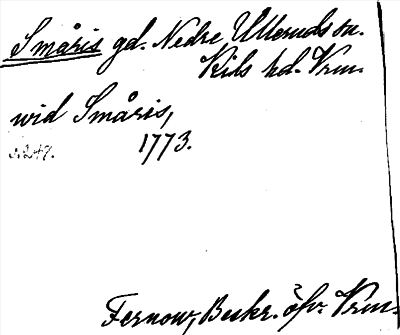 Småris gd. Nedre Ulleruds sn.
Kils hd. Vrm.
wid Småris,
s. 247. 1773.
Fernow, Beskr. öfv. Vrm.